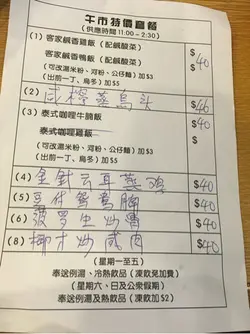 午市特價套餐
(供應時間11:00 – 2:30)
(1) 客家鹹香雞飯 (配鹹酸菜)
客家鹹香鴨飯 (配鹹酸菜) $40
(可改瀨米粉、河粉、公仔麵) 加$3
(出前一丁、烏冬) 加$5
(2) 咸檸蒸烏头 $46
(3) 泰式咖哩牛腩飯 $40
泰式咖哩雞飯
(可改瀨米粉、河粉、公仔麵) 加$3
(出前一丁、烏冬) 加$5
(4) 金針云耳蒸鸡 $40
(5) $40
(6) 菠罗生炒骨 $40
(8) 椰才炒咸肉 $40
(星期一至五)
奉送例湯、冷熱飲品 (凍飲免加費)
(星期六、日及公眾假期)
奉送例湯及熱飲品 (凍飲加$2)